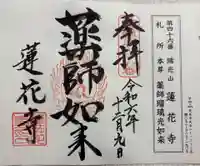 第四十六番
札所 本尊
蓮花寺
薬師瑠璃光如来
奉拝
令和六年
十二月九日
薬師如来
蓮花寺